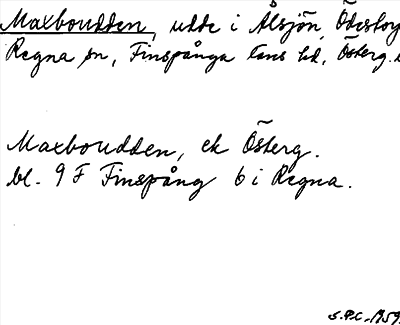 Maxboudden, udde i Ålsjön, Ödestorp
Regna sn, Finspånga läns hd, Österg.
Maxboudden, ek Österg.
bl. 9 F Finspång 6 i Regna.
S.P.C. 1959.